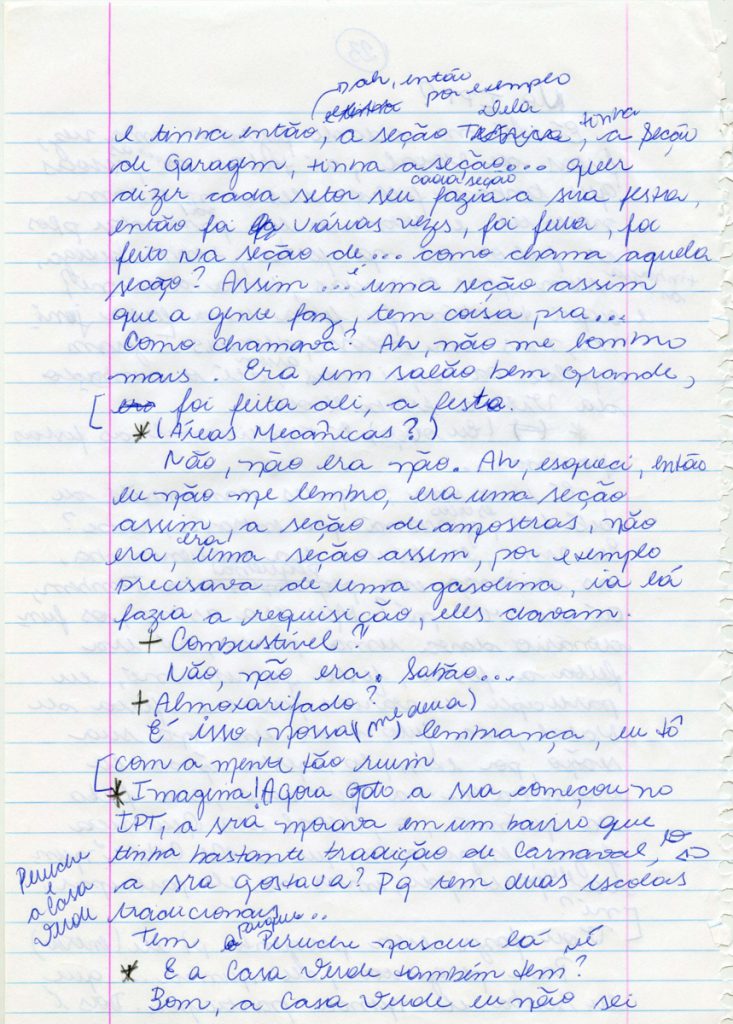 ah, então
por exemplo
Dela
e tinha então, a seção, tinha a Seção
de Garagem, tinha a seção... quer
cada seção
dizer cada setor seu fazia a sua festa,
então foi várias vezes, foi feita, foi
feito na seção de... como chama aquela
seção? Assim... é uma seção assim
que a gente faz, tem coisa, pra...
Como chamava? Ah, não me lembro
mais. Era um salão bem grande,
foi feita ali, a festa.
* (Áreas Mecânicas?)
Não, não era não. Ah, esqueci, então
eu não me lembro, era uma seção
assim, a seção de amostras, não
era, era uma seção assim, por exemplo
precisava de uma gasolina, ia lá
fazia a requisição, eles davam.
+ Combustível?
Não, não era. Sabão...
+ Almoxarifado?
É isso, nossa (me deua) lembrança, eu tô
com a mente tão ruim
* Imagina! Agora qdo a sra começou no
IPT, a sra morava em um bairro que
tinha bastante tradição de Carnaval,
a sra gostava? Pq tem duas escolas
tradicionais...
Peruche
e
a Casa
Verde
Tem a porque Peruche nasceu lá, né
* E a Casa Verde também tem?
Bom, a Casa Verde eu não sei